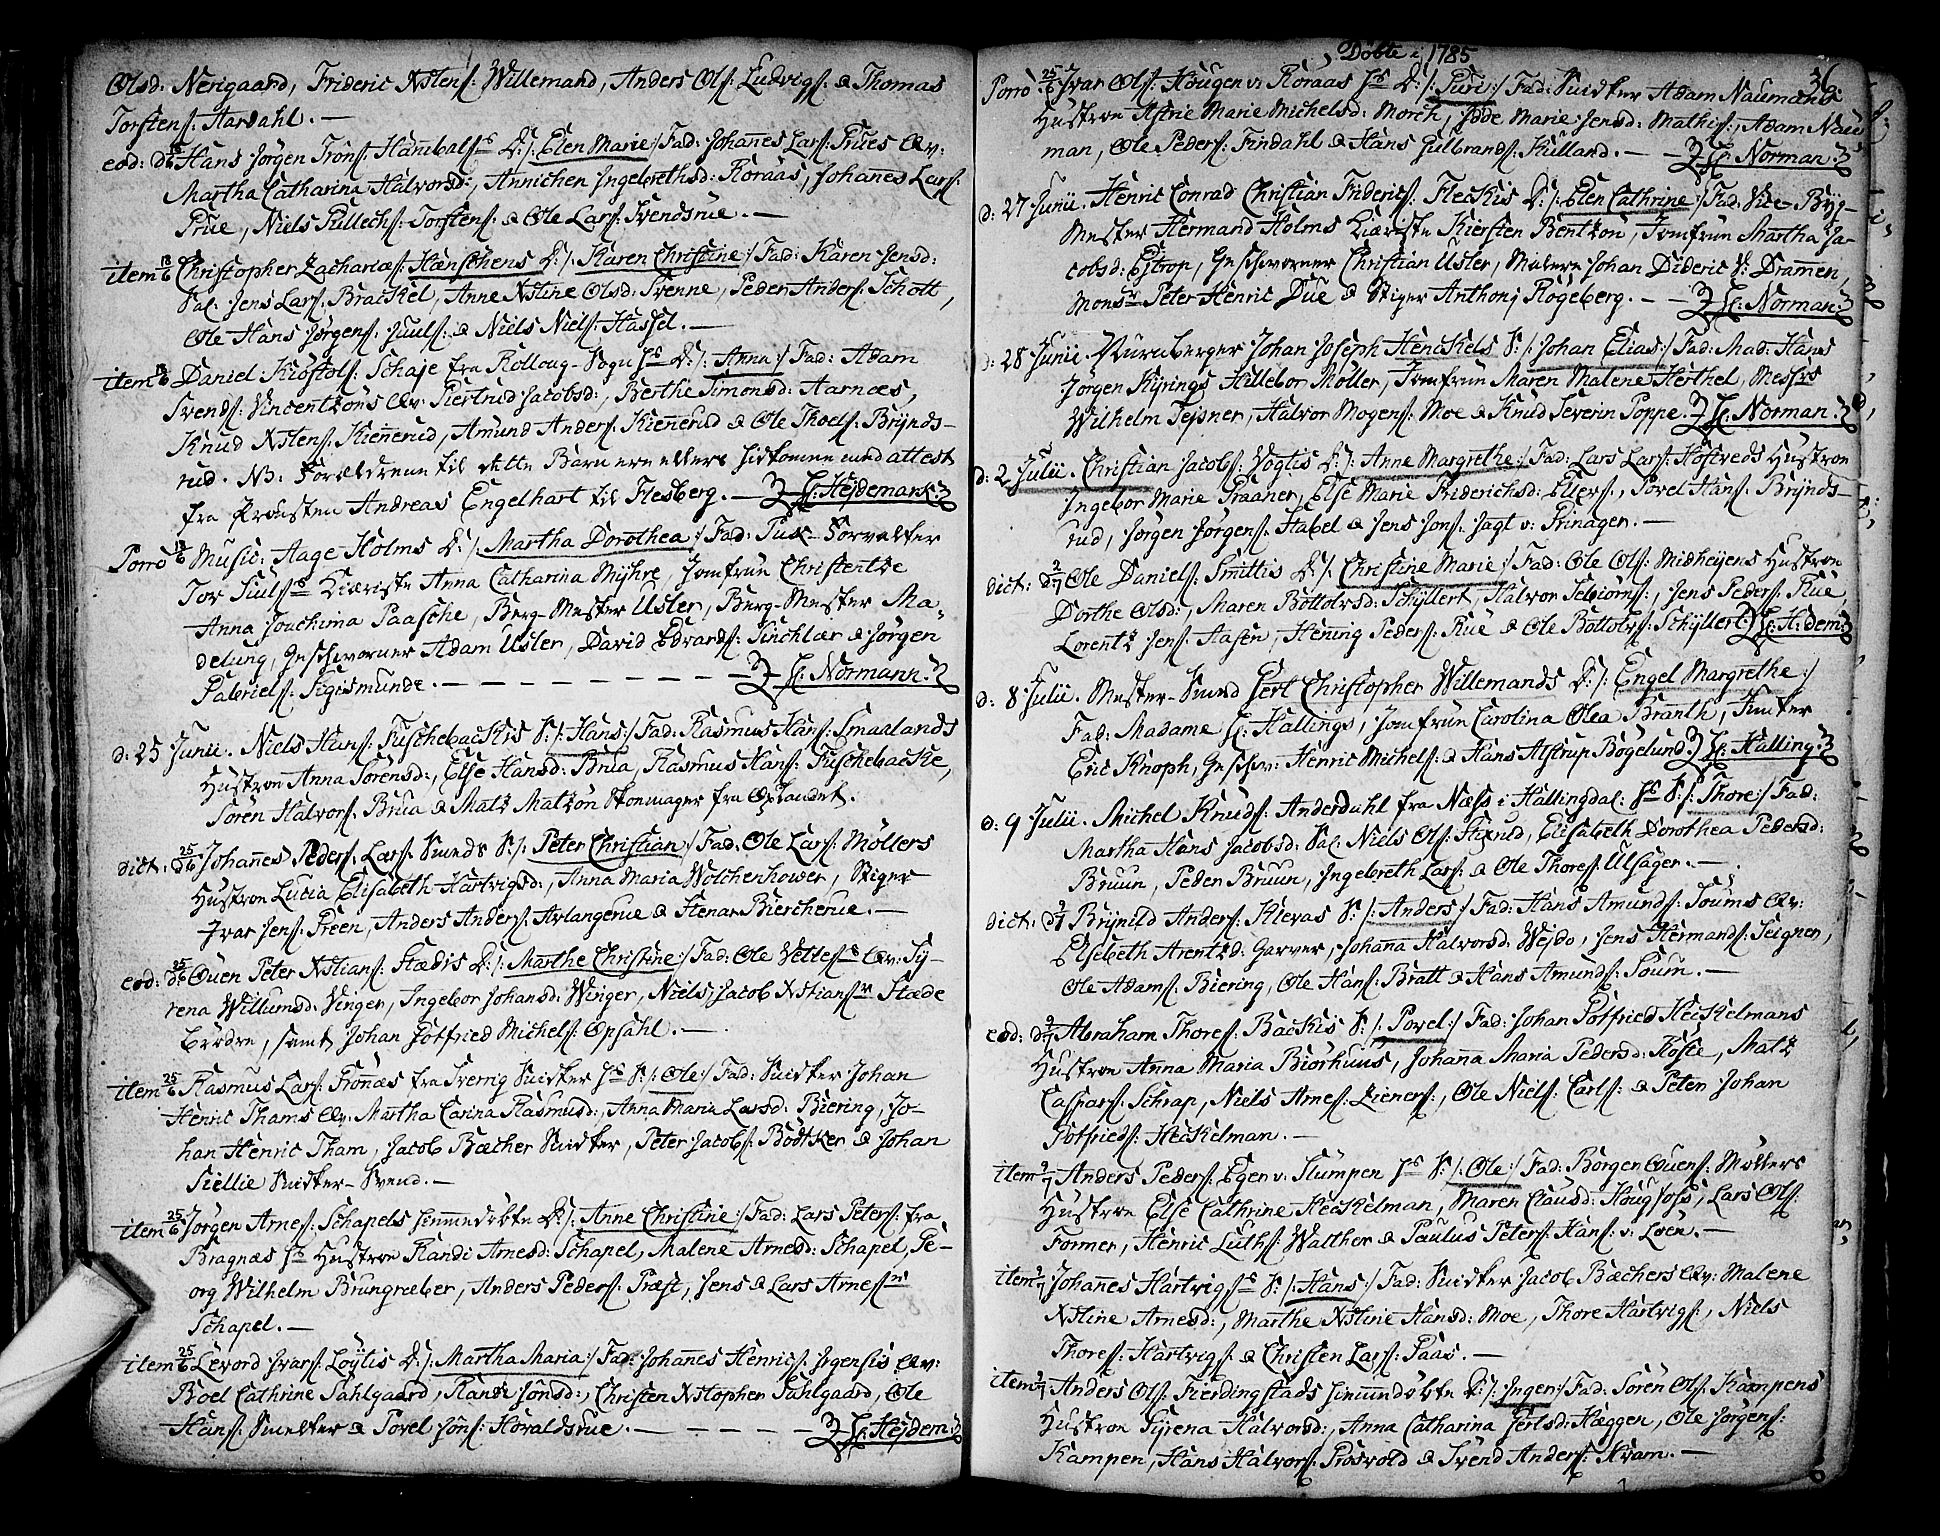 Olsd: Nerigaard, Frideric Xstens: Willemand, Anders Ols: Ludvigs: & Thomas
Torstens: Aardahl. —
eod: d 18/6 Hans Jörgen Tröns: Hannibals D: /: Elen Marie :/ Fad: Johannes Lars: Prües Qv:
Martha Catharina Halvorsd:, Annichen Ingebrethsd: Röraas, Johannes Lars:
Prüe, Niels Torstens: & Ole Lars: Svendsrue. —
item 18/6 Christopher Zachariæs: Hænschens D: /: Karen Christine :/ Fad: Karen Jensd:
Sal. Jens Lars: Brackel, Anne Xstine Olsd: Svenne, Peder Anders: Schott,
Ole Hans Jörgens: Juuls: & Niels Niels: Hassel. —
item 18/6 Daniel Kiöstols: Schaje fra Rolloug-Sogn D: /: Anna :/ Fad: Adam
Svends: Vincentzöns Qv: Giertrud Jacobsd:, Berthe Simonsd: Aarnæs,
Knud Xstens: Kiennerud, Amund Anders: Kiennerud & Ole Thoes: Brÿnds-
rud. NB: Forældrene til dette Barn ere ellers hidkomne med attest
fra Prousten Andreas Engelhart til Flesberg. — H: Hejdemark.
Porrò 18/6 Music: Aage Holms D: /: Martha Dorothea :/ Fad: Forvalter
Tor Kiæriste Anna Catharina Mÿhre, Jomfrue Christentze
Anna Jouchima Paasche, Berg-Mester Usler, Berg-Mester Ma-
delung, Geschworner Adam Usler, David Edvards: Sinchlær & Jörgen
Gabriels: Sigismunde. — — — H: Normann.
d: 25 Junii. Niels Hans: Fuschebackis S: /: Hans :/ Fad: Rasmus Hans: Smaalands
Hustroe Anna Sörensd:, Else Hansd: Brua, Rasmus Hans: Fuschebacke,
Sören Halvors: Brua & Matz Matzön Skomager fra Oplandet.
dict: d 25/6 Johannes Peders: Smeds S: /: Peter Christian :/ Fad: Ole Lars: Möllers
Hustroe Lucia Elisabeth Hartvigsd:, Anna Maria Wolchenhower, Stiger
Ivar Jens: Preen, Anders Anders: Avlangerue & Stenar Biercherue. —
eod: d 25/6 Ouen Peter Xstians: Stædis D: /: Marthe Christine :/ Fad: Ole Vettes Qv: Sÿ-
rena Willumsd: Vinger, Ingebor Johansd: Winger, Niels, Jacob Xstians: Stæde
Brödre, samt Johan Gotfried Michels: Opsahl. —
item 25/6 Rasmus Lars: Trönæs fra Sverrig Snidker S: /: Ole :/ Fad: Snidker Johan
Henric Thams Qv: Martha Carina Rasmusd:, Anna Maria Larsd: Biering, Jo-
han Henric Tham, Jacob Bæcher Snidker, Peter Jacobs: Bödtker & Johan
Giellie Snidker-Svend. —
item 25/6 Jörgen Arnes: Schapels hiemmedöbte D: /: Anne Christine :/ Fad: Lars Peters: fra
Bragnæs Hustroe Randi Arnesd: Schapel, Malene Arnesd: Schapel, Ge-
org Wilhelm Brungræber, Anders Peders: Præst, Jens & Lars Arnes:
Schapel. —
item 25/6 Levord Ivars: Löÿtis D: /: Martha Maria :/ Fad: Johannes Henrics: Qv:
Boel Cathrine Sahlgaard, Rande Jönsd:, Christen Xstopher Sahlgaard, Ole
Hans: Smelter & Povel Jöns: Horaldsrue. — — — H: Hejdem:
Döbte i 1785
36
Porrò 25/6 Ivar Ols: Hougen v: Röraas D: /: Guri :/ Fad: Snidker Adam Naumans
Hustroe Astrie Marie Michelsd: Morch, Marie Jensd: Mathis:, Adam Nau-
man, Ole Peders: Findahl & Hans Gulbrands: Kulland. — H: Norman.
d: 27 Junii. Henric Conrad Christian Friderics: Fleckis D: /: Elen Cathrine :/ Fad: Vice-Byg-
Mester Hermand Holms Kiæriste Kiersten Bentzön, Jomfrue Martha Ja-
cobsd: Estrop, Geschworner Christian Usler, Maleren Johan Dideric V: Dramen,
Mons: Peter Henric Due & Stiger Anthonj Rögeberg. — H: Norman
d: 28 Junii. Nürnberger Johan Joseph Henckels S: /: Johan Elias :/ Fad: Mad: Hans
Jörgen Kÿrings Hillebor Möller, Jomfrue Maren Malene Herthel, Mess:rs
Wilhelm Tejsner, Halvor Mogens: Moe & Knud Severin Poppe. H: Norman.
d: 2 Julii. Christian Jacobs: Vogtis D: /: Anne Margrethe :/ Fad: Lars Lars: Hostveds Hustroe
Ingebor Marie Graaner, Else Marie Friderichsd: Ellers:, Povel Hans: Brÿnds-
rud, Jörgen Jörgens: Stabel & Jens Jons: Jagt v: Prinager. —
dict: d 2/7 Ole Daniels: Smittis D: /: Christine Marie :/ Fad: Ole Ols: Midheÿens Hustroe
Dorthe Olsd:, Maren Bottolvsd: Schÿllert, Halvor Tebiörns:, Jens Peders: Rüe
Lorentz Jens: Aasen, Henning Peders: Rüe & Ole Bottolvs: Schÿllert. H: H:dem:
d: 8 Julii. Mester-Smed Gert Christopher Willemands D: /: Engel Margrethe :/
Fad: Madame H: Hallings, Jomfrue Carolina Olea Branth, Junker
Eric Knoph, Geschw: Henric Michels: & Hans Alstrup Bögelund. H: Halling.
d: 9 Julii. Michel Knuds: Anderdahl fra Næss i Hallingdal: S: /: Thore :/ Fad:
Martha Hans Jacobsd: Sal. Niels Ols: Elisabeth Dorothea Pedersd:
Bruun, Peder Bruun, Ingebreth Lars: & Ole Thores: Ulsager. —
dict: d 9/7 Brÿnild Anders: Klevas S: /: Anders :/ Fad: Hans Amunds: Soums Qv:
Elsebeth Arentzd: Garver, Johana Halvorsd: Wejdo, Jens Hermands: Teigner,
Ole Adams: Biering, Ole Hans: Bratt & Hans Amunds: Soum. —
eod: d 9/7 Abraham Thores: Backis S: /: Povel :/ Fad: Johan Gotfried Heckelmans
Hustroe Anna Maria Biörhuus, Johanna Maria Pedersd: Foste, Matz
Caspars: Schrap, Niels Arnes: Zieners:, Ole Niels: Carls: & Peter Johan
Gotfrieds: Heckelman. —
item 9/7 Anders Peders: Egen v: Slumpen S: /: Ole :/ Fad: Börgen Ouens: Möllers
Hustroe Else Cathrine Heckelman, Maren Clausd: Houg Joss, Lars Ols:
Former, Henric Luths: Walther & Paulus Peters: Hans: v: Löen. —
item 9/7 Johannes Hartvigs: S: /: Hans :/ Fad: Snidker Jacob Bæchers Qv: Malene
Xstine Arnesd:, Marthe Xstine Hansd: Moe, Thore Hartvigs:, Niels
Thores: Hartvigs: & Christen Lars: Paas. —
item 9/7 Anders Ols: Fierdingstads hiemmedöbte D: /: Inger :/ Fad: Sören Ols: Kampens
Hustroe Sÿrena Halvorsd:, Anna Catharina Jerlsd: Hæggen, Ole Jörgens:
Kampen, Hans Halvors: Grösvold & Svend Anders: Kvam. —